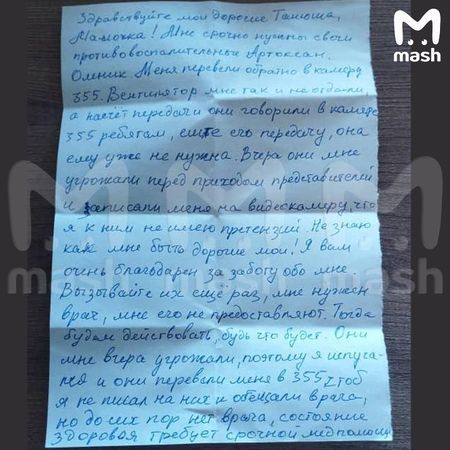 Здравствуйте мои дорогие Танюша,
Мамочка! Мне срочно нужны свечи
противовоспалительные Артоксан.
Омник Меня перевели обратно в камеру
355. Вентилятор мне так и не отдали,
а насчёт передачи они говорили в камере
355 ребятам, ешьте его передачу, она
ему уже не нужна. Вчера они мне
угрожали перед приходом представителей
и записали меня на видеокамеру, что
я к ним не имею претензий. Не знаю
как мне быть дорогие мои! Я вам
очень благодарен за заботу обо мне.
Вызывайте их ещё раз, мне нужен
врач, мне его не предоставляют. Тогда
будем действовать, будь что будет. Они
мне вчера угрожали, поэтому я испуга-
лся и они перевели меня в 355, чтоб
я не писал на них и обещали врача,
но до сих пор нет врача, состояние
здоровья требует срочной медпомощи
M
mash
mash
mash